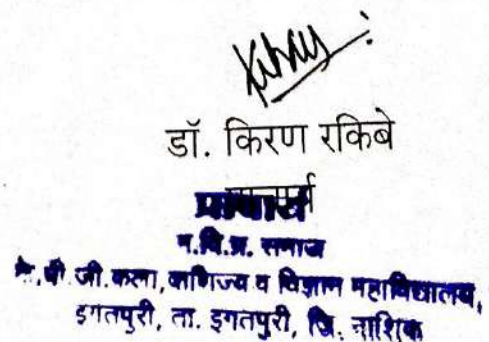 डॉ. किरण रकिबे
प्राचार्य
म.वि.प्र. समाज
के.पी.जी.कला, वाणिज्य व विज्ञान महाविद्यालय,
इगतपुरी, ता. इगतपुरी, जि. नाशिक